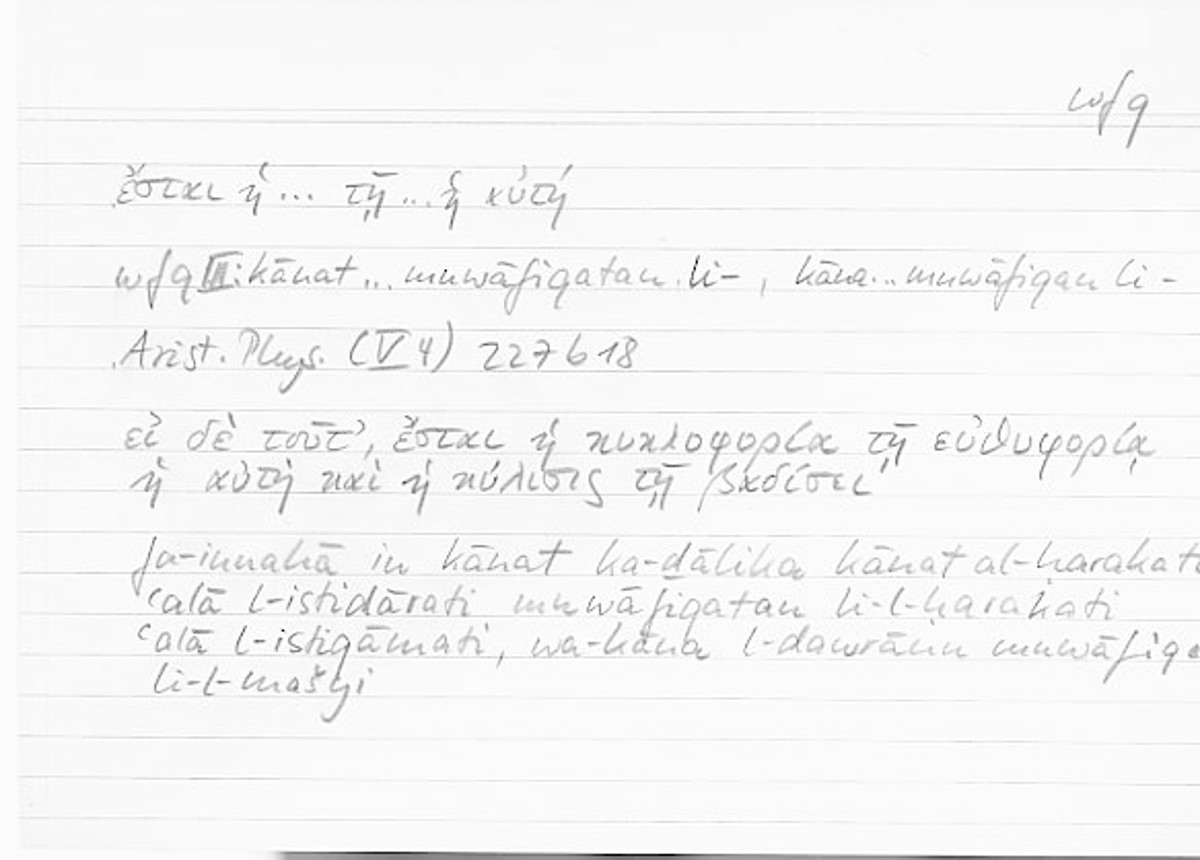 wfq
ἔσται ἡ... τῇ... ἡ αὐτή
wfq III: kānat ... muwāfiqatan li-, kāna... muwāfiqan li-
Arist. Phys. (V 4) 227 b 18
εἰ δὲ τοῦτ', ἔσται ἡ κυκλοφορία τῇ εὐθυφορίᾳ
ἡ αὐτὴ καὶ ἡ κύλισις τῇ βαδίσει
fa-innahā in kānat ka-ḏālika kānat al-ḥarakat
ʿalā l-istidārati muwāfiqatan li-l-ḥarakati
ʿalā l-istiqāmati, wa-kāna l-dawrānu muwāfiqa
li-l-mašyi